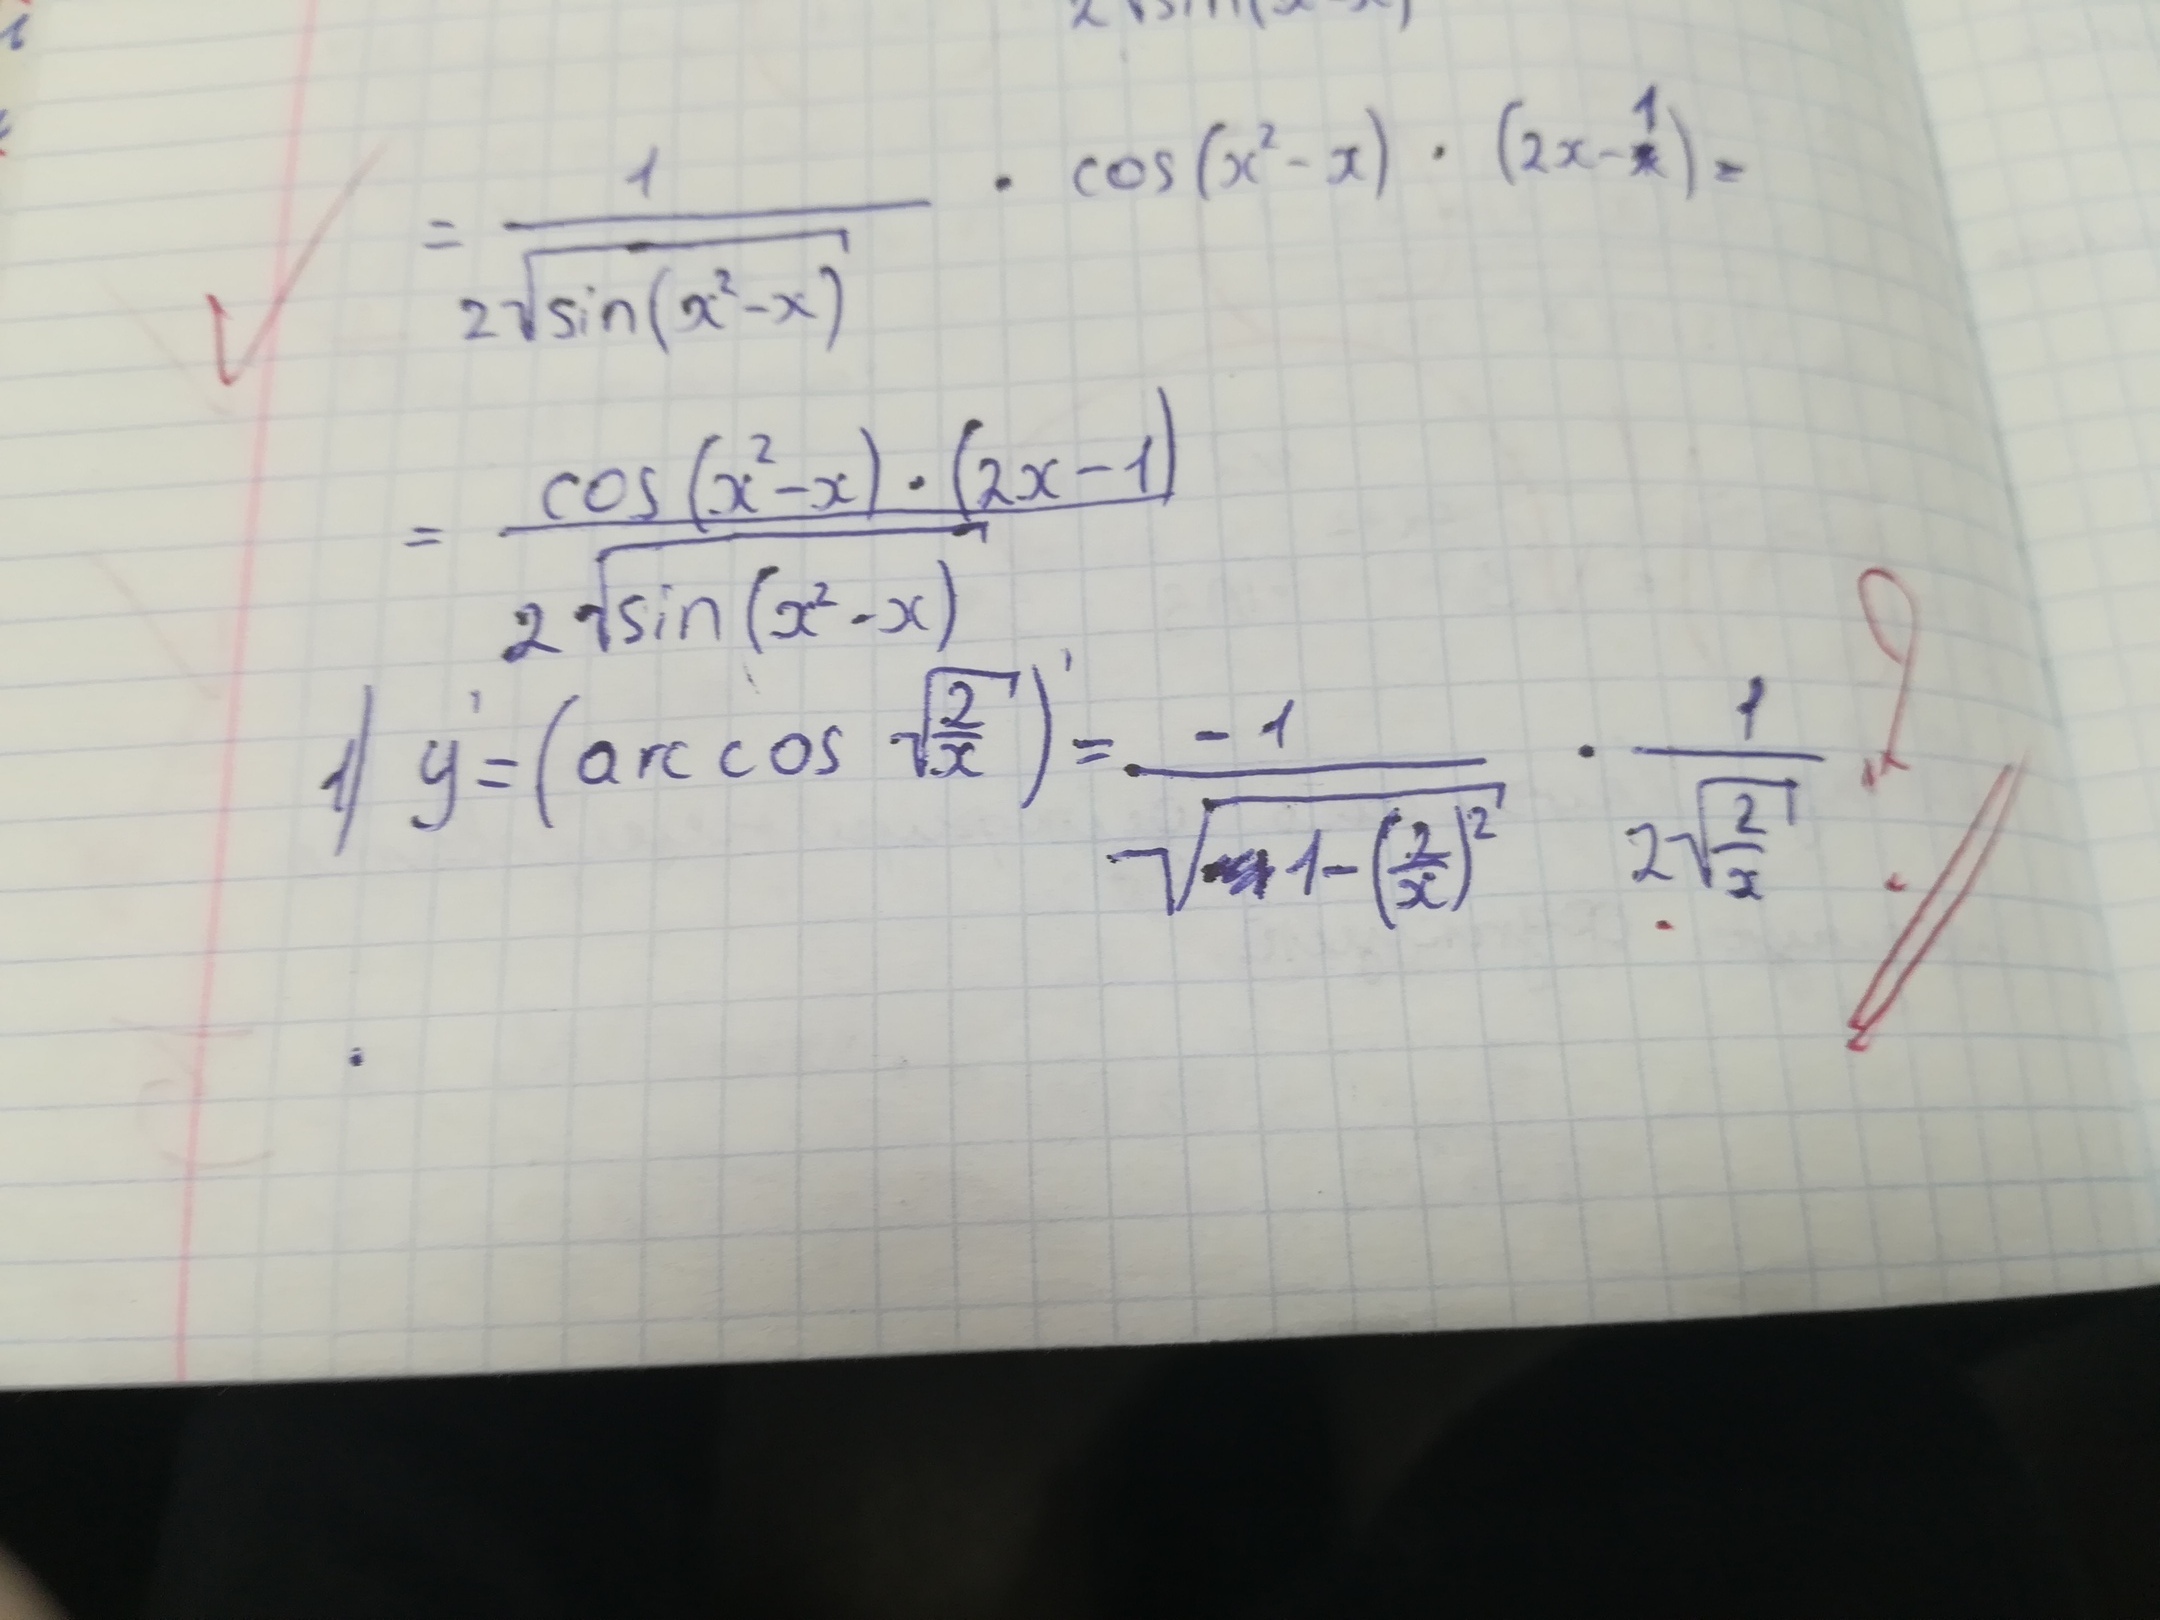 2√sin(x²-x)
= 1/(2√sin(x²-x)) · cos(x²-x) · (2x-1) =
= (cos(x²-x) · (2x-1))/(2√sin(x²-x))
1) y' = (arc cos √(2/x))' = -1/√(1-(2/x)²) · 1/(2√(2/x)) ?